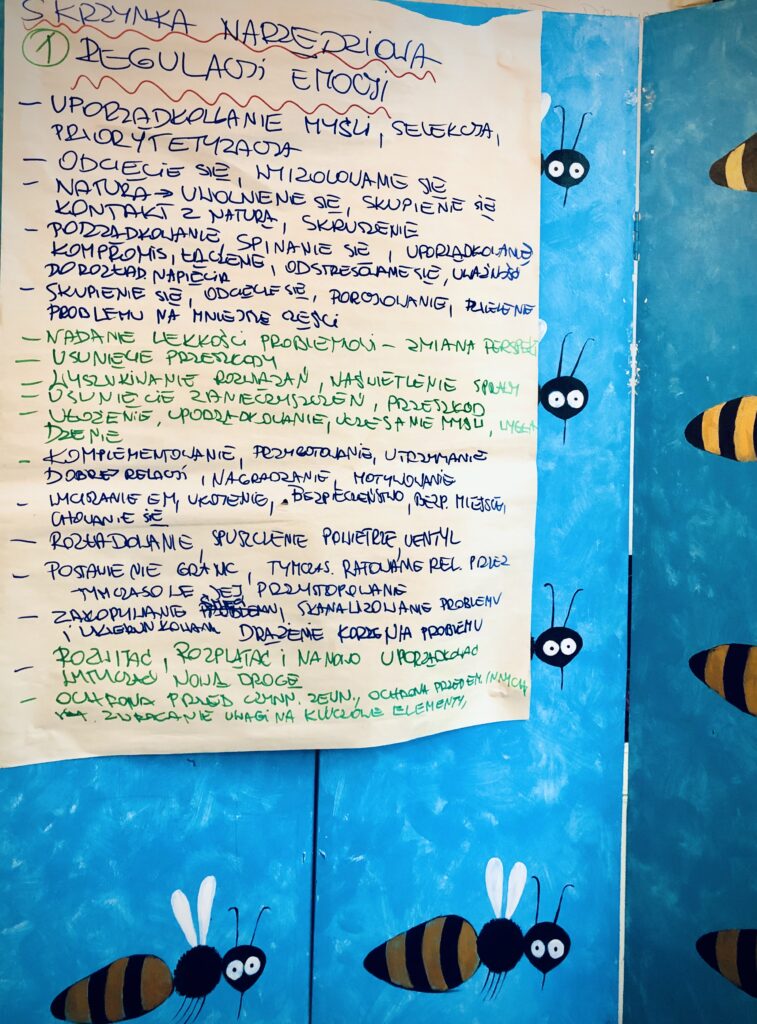 SKRZYNKA NARZĘDZIOWA
① REGULACJI EMOCJI
– UPORZĄDKOWANIE MYŚLI, SELEKCJA,
PRIORYTETYZACJA
– ODCIĘCIE SIĘ, WYIZOLOWANIE SIĘ
– NATURA → UWOLNIENIE SIĘ, SKUPIENIE SIĘ
KONTAKT Z NATURĄ, SKRUSZENIE
– PORZĄDKOWANIE, SPINANIE SIĘ, UPORZĄDKOWANIE
KOMPROMIS, ŁĄCZENIE, ODSTRESOWANIE SIĘ, UWAŻNOŚĆ
DO ROZŁAD NAPIĘCIA
– SKUPIENIE SIĘ, ODCIĘCIE SIĘ, DZIELENIE
PROBLEMU NA MNIEJSZE CZĘŚCI
– NADANIE LEKKOŚCI PROBLEMOWI – ZMIANA PERSPEKT
– USUNIĘCIE PRZESZKODY
– WYSZUKIWANIE ROZWIĄZAŃ, NAŚWIETLENIE SPRAWY
– USUNIĘCIE ZANIECZYSZCZEŃ, PRZESZKOD
– UŁOŻENIE, UPORZĄDKOWANIE, UCZESANIE MYŚLI, WYGŁA
DZENIE
– KOMPLEMENTOWANIE, PRZYGOTOWANIE, UTRZYMANIE
DOBREJ RELACJI, NAGRADZANIE, MOTYWOWANIE
– WYCISZANIE EM, UKOJENIE, BEZPIECZEŃSTWO, BEZP. MIEJSCE,
CHOWANIE SIĘ
– ROZŁADOWANIE, SPUSZCZENIE POWIETRZA, WENTYL
– POSTAWIENIE GRANIC, TYMCZAS. RATOWANIE REL. PRZEZ
TYMCZASOWE JEJ PRZYSTOPOWANIE
– ZAKOPYWANIE PROBLEMU, SKANALIZOWANIE PROBLEMU
I UKIERUNKOWANIE DRĄŻENIE KORZENIA PROBLEMU
– ROZWITAĆ, ROZPLĄTAĆ I NA NOWO UPORZĄDKOWAĆ
WYTYCZAĆ NOWĄ DROGĘ
– OCHRONA PRZED CZYNN. ZEWN., OCHRONA PRZED EM. INNYCH,
ZWRACANIE UWAGI NA KLUCZOWE ELEMENTY,